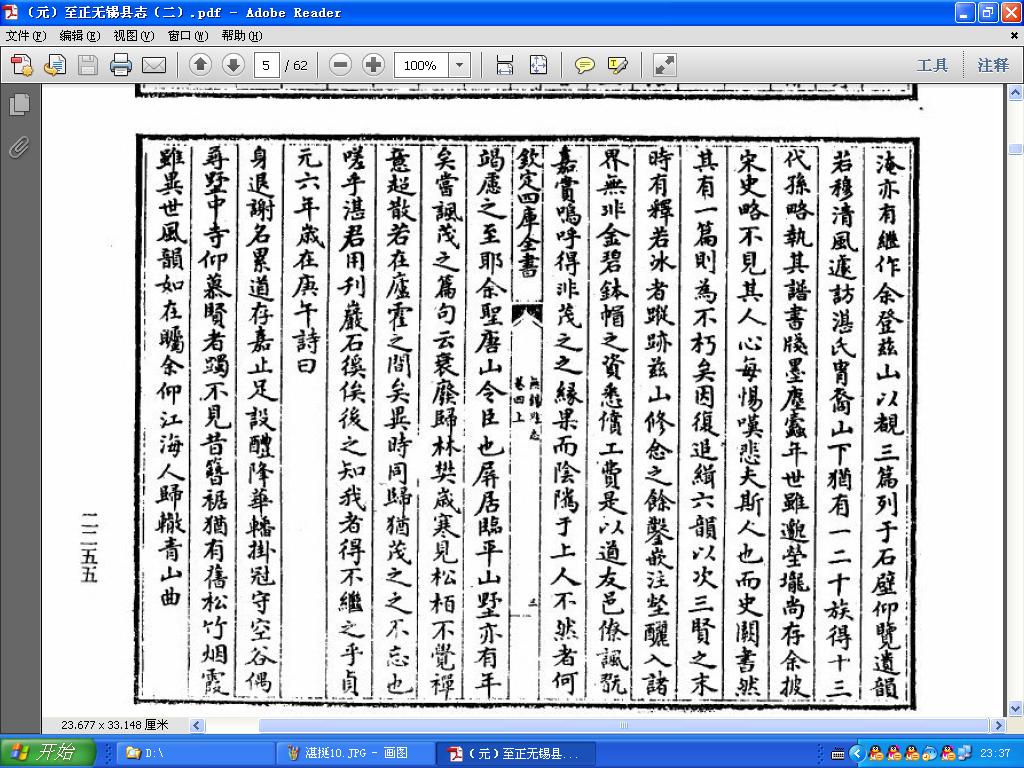 （元）至正无锡县志（二）.pdf - Adobe Reader
文件(F) 编辑(E) 视图(V) 窗口(W) 帮助(H)
5 / 62 100% 工具 注释
淹亦有继作余登兹山以觀三篇列于石壁仰覽遺韻
若穆清風遽訪湛氏胄裔山下猶有一二十族得十三
代孫略執其譜書牋墨塵蠹年世雖邈塋壠尚存余披
宋史略不見其人心每惕嘆悲夫斯人也而史闕書然
其有一篇則為不朽矣因復追緝六韻以次三賢之末
時有釋若冰者蹤跡兹山修念之餘鑿嵌注壑釃入諸
界無非金碧鉢帽之資悉償工費是以道友邑僚諷翫
嘉賞嗚呼得非茂之之緣果而陰隲于上人不然者何
欽定四庫全書
無錫縣志
卷四上
三
竭慮之至耶余聖唐山令臣也屏居臨平山墅亦有年
矣嘗諷茂之篇句云衰廢歸林樊歲寒見松栢不覺禪
意超散若在廬霍之間矣異時同歸猶茂之之不忘也
嗟乎湛君用刋巖石徯俟後之知我者得不繼之乎貞
元六年歲在庚午詩曰
身退謝名累道存嘉止足設醴降華轓掛冠守空谷偶
尋墅中寺仰慕賢者躅不見昔簪裾猶有舊松竹烟霞
雖異世風韻如在矚余仰江海人歸轍青山曲
二二五五
23.677 x 33.148 厘米
开始 D:\ 湛挺10.JPG - 画图 （元）至正无锡县... 23:37